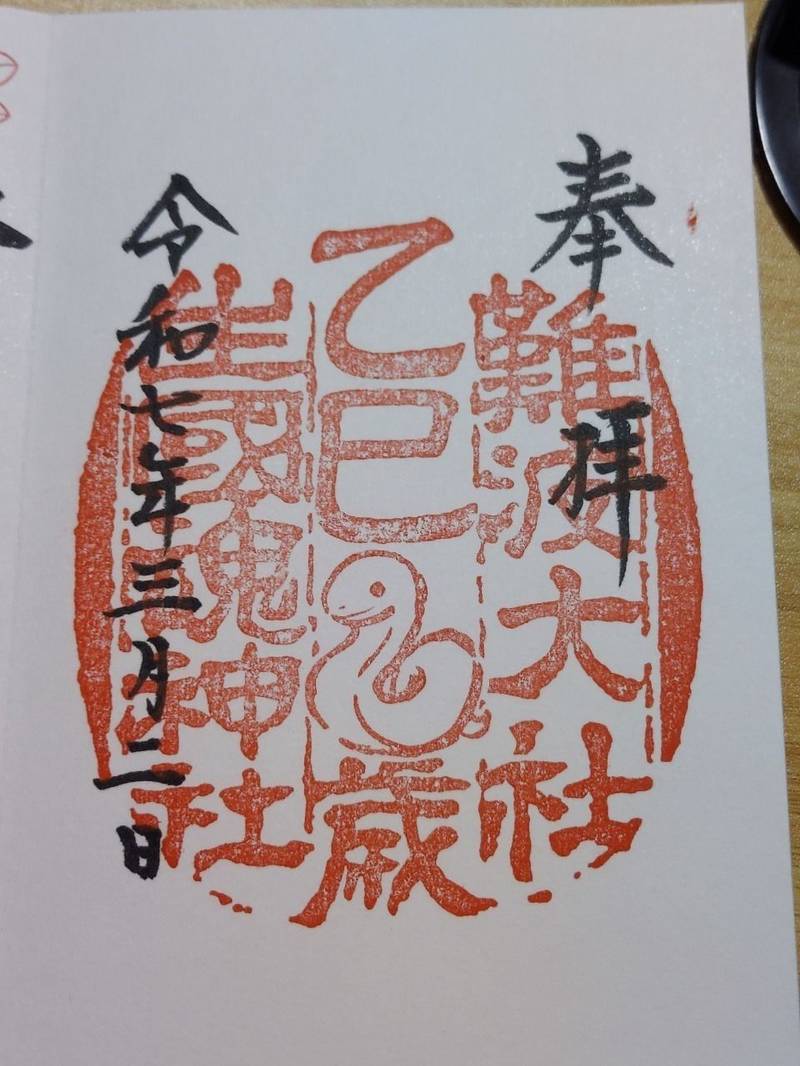 奉拝
難波大社
乙巳歳
生國魂神社
令和七年三月二日